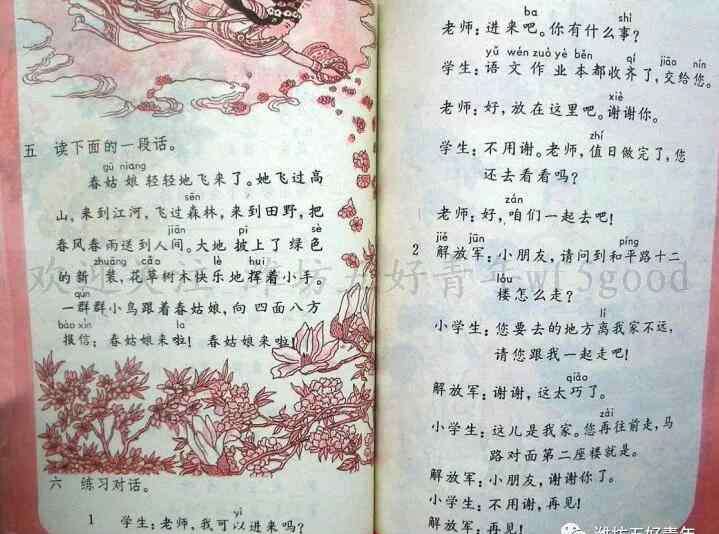 五 读下面的一段话。
gū niang
春姑娘轻轻地飞来了。她飞过高
sēn
山，来到江河，飞过森林，来到田野，把
jiān pī sè
春风春雨送到人间。大地披上了绿色
zhuāng cǎo lè huī
的新装，花草树木快乐地挥着小手。
qún
一群群小鸟跟着春姑娘，向四面八方
bào xìn la
报信：春姑娘来啦！春姑娘来啦！
六 练习对话。
yǐ
1 学生：老师，我可以进来吗？
ba shì
老师：进来吧。你有什么事？
yǔ wén zuò yè běn qí jiāo nín
学生：语文作业本都收齐了，交给您。
xiè
老师：好，放在这里吧。谢谢你。
zhí
学生：不用谢。老师，值日做完了，您
还去看看吗？
zán
老师：好，咱们一起去吧！
jiě jūn píng
2 解放军：小朋友，请问到和平路十二
lóu
楼怎么走？
lí
小学生：您要去的地方离我家不远，
请您跟我一起走吧！
qiǎo
解放军：谢谢，这太巧了。
zài
小学生：这儿是我家。您再往前走，马
路对面第二座楼就是。
解放军：小朋友，谢谢你了。
小学生：不用谢，再见！
解放军：再见！
潍坊五好青年